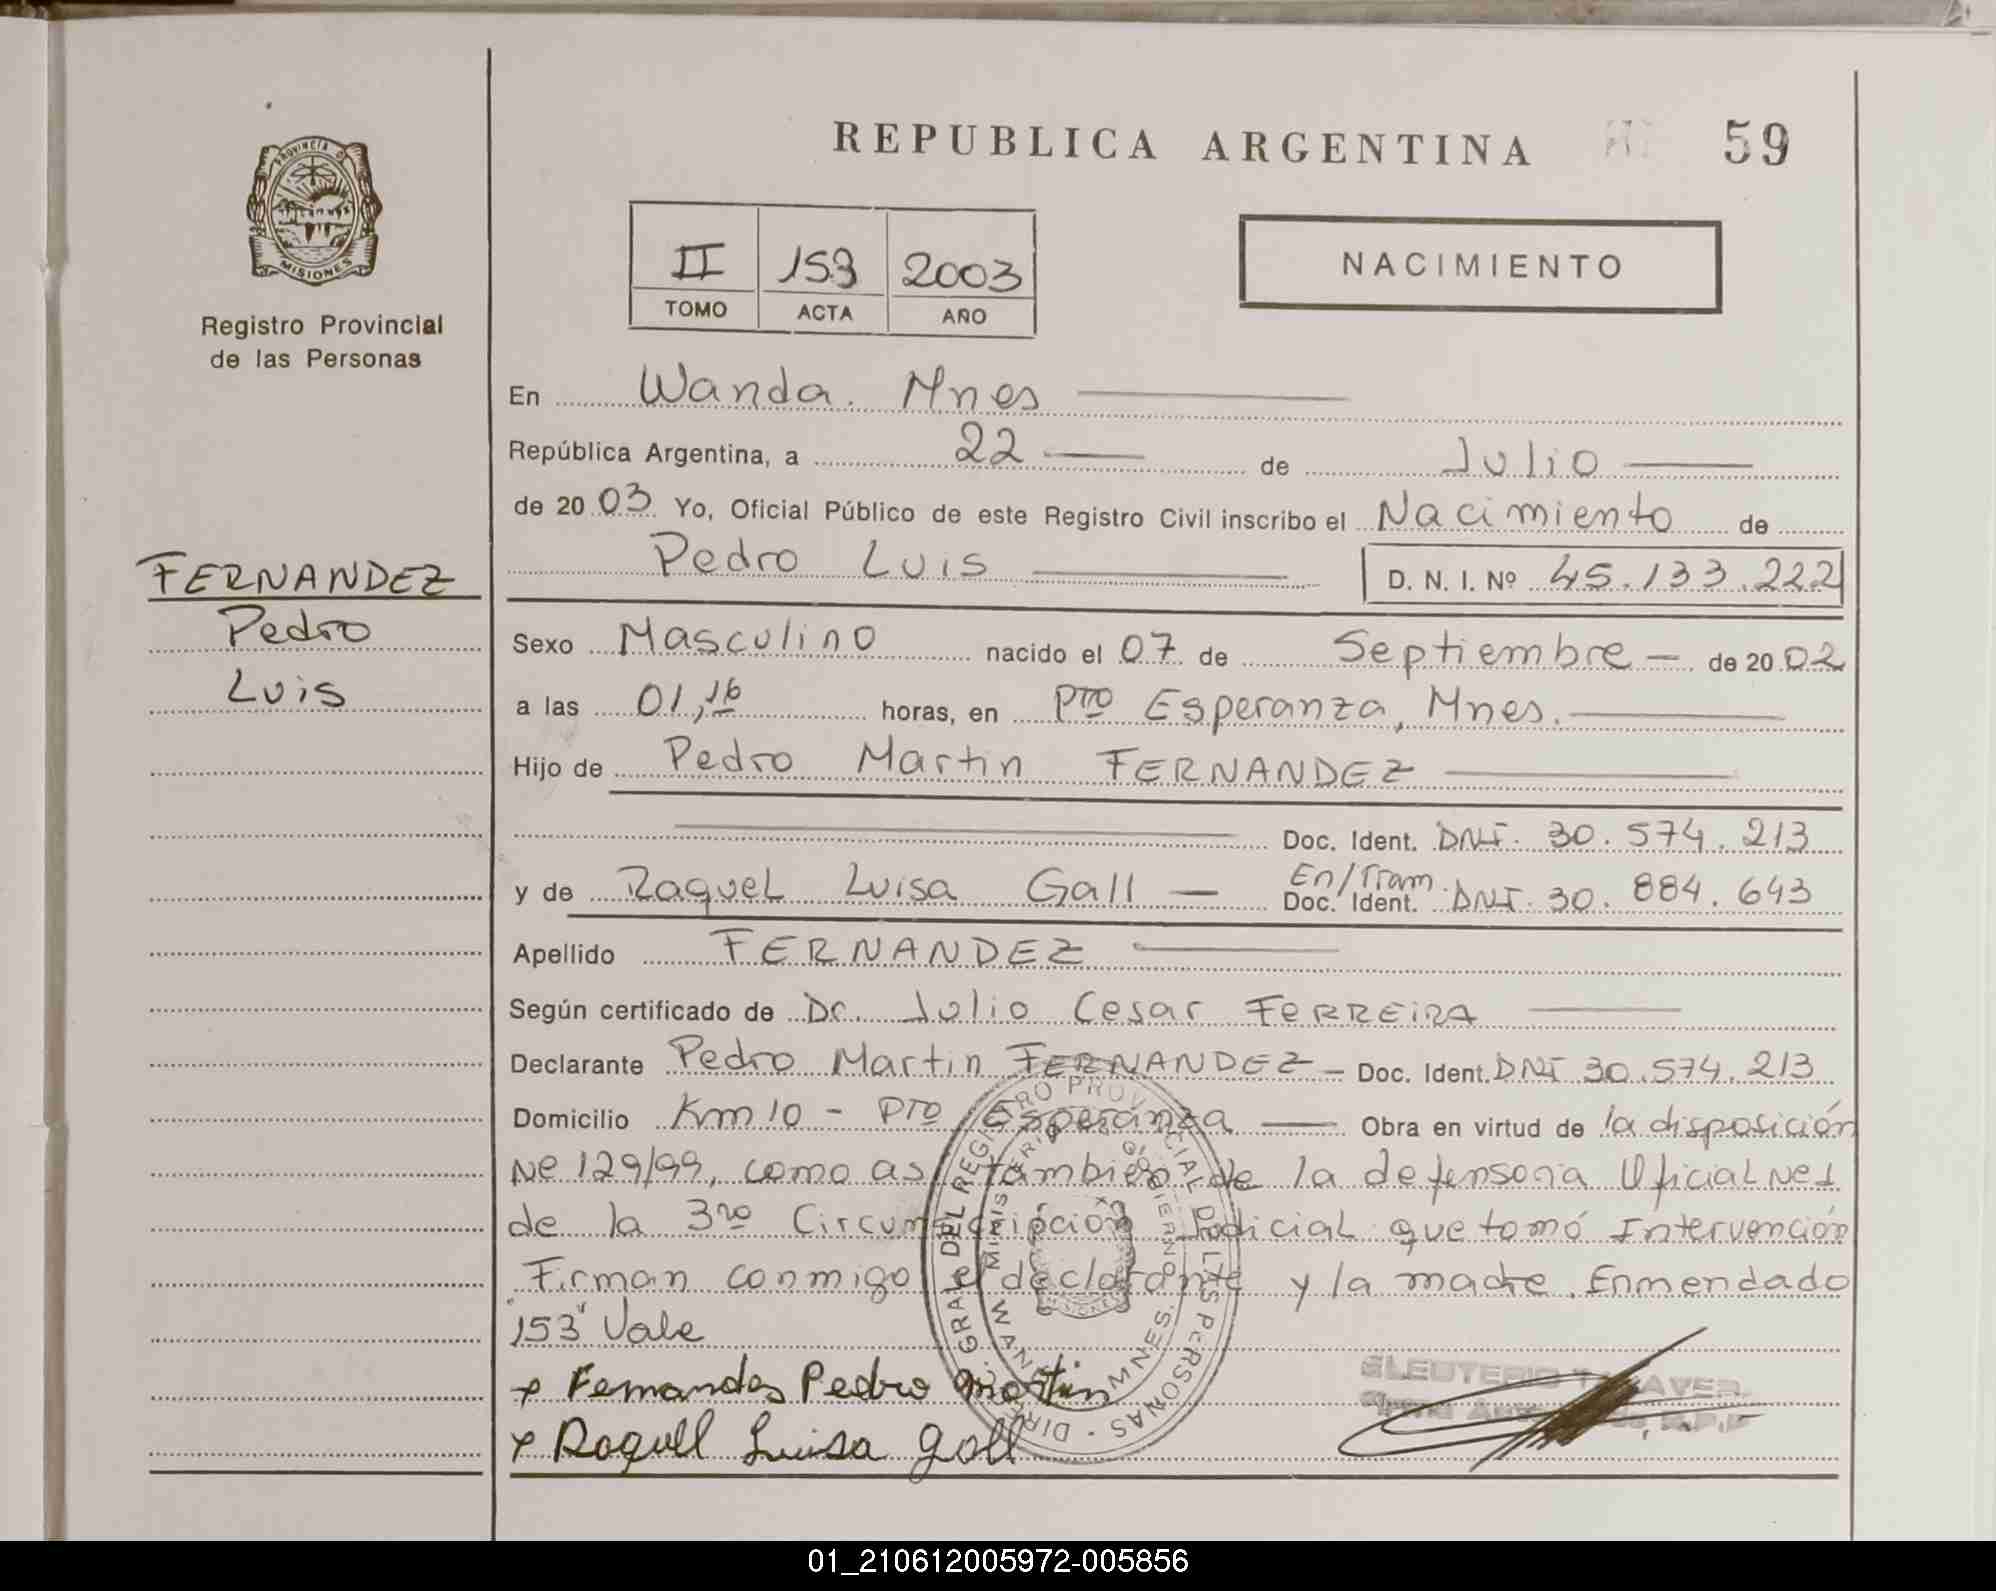 REPUBLICA ARGENTINA
59
PROVINCIA DE
MISIONES
Registro Provincial
de las Personas
II 153 2003
TOMO ACTA AÑO
NACIMIENTO
En Wanda. Mnes
República Argentina, a 22 de Julio
de 2003 Yo, Oficial Público de este Registro Civil inscribo el Nacimiento de
Pedro Luis D. N. I. Nº 45.133.222
FERNANDEZ
Pedro
Luis
Sexo Masculino nacido el 07 de Septiembre de 2002
a las 01,16 horas, en Pto Esperanza, Mnes.
Hijo de Pedro Martin FERNANDEZ
Doc. Ident. DNI. 30.574.213
En/Tram.
y de Raquel Luisa Gall Doc. Ident. DNI. 30.884.643
Apellido FERNANDEZ
Según certificado de Dr. Julio Cesar FERREiRA
Declarante Pedro Martin FERNANDEZ - Doc. Ident. DNI 30.574.213
Domicilio Km 10 - Pto Esperanza Obra en virtud de la disposición
Nº 129/99, como asi tambien de la defensoria Oficial Nº 1
de la 3ra Circunscripción Judicial que tomó Intervención
Firman conmigo el declarante y la madre. Enmendado
"153" Vale
Fernandes Pedro Martin
Raquel Luisa Gall
DIREC. GRAL. DEL REGISTRO PROVINCIAL DE LAS PERSONAS
MINISTERIO DE GOBIERNO
WANDA MNES.
ELEUTERIO
01_210612005972-005856